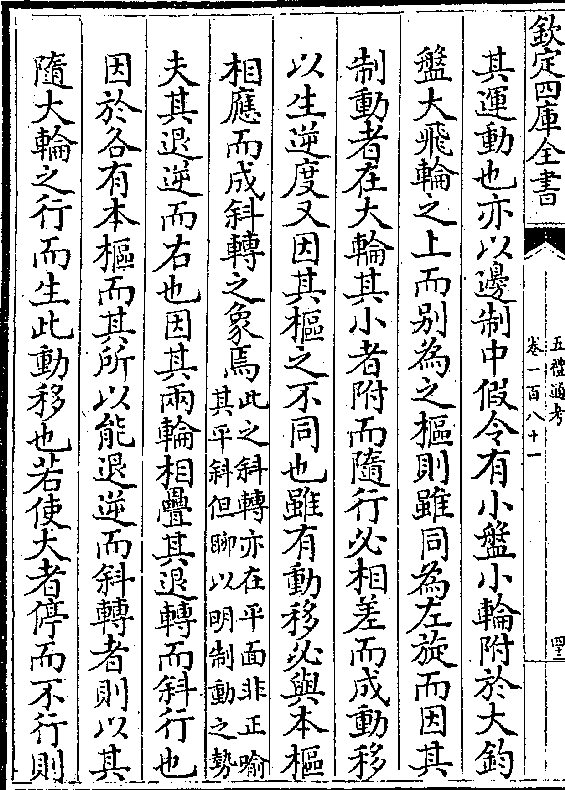 欽定四庫全書
五禮通考
卷一百八十一
四十二
其運動也亦以邊制中假令有小盤小輪附於大鈞
盤大飛輪之上而别為之樞則雖同為左旋而因其
制動者在大輪其小者附而隨行必相差而成動移
以生逆度又因其樞之不同也雖有動移必與本樞
相應而成斜轉之象焉此之斜轉亦在平面非正喻
其平斜但聊以明制動之勢
夫其退逆而右也因其兩輪相疊其退轉而斜行也
因於各有本樞而其所以能退逆而斜轉者則以其
隨大輪之行而生此動移也若使大者停而不行則